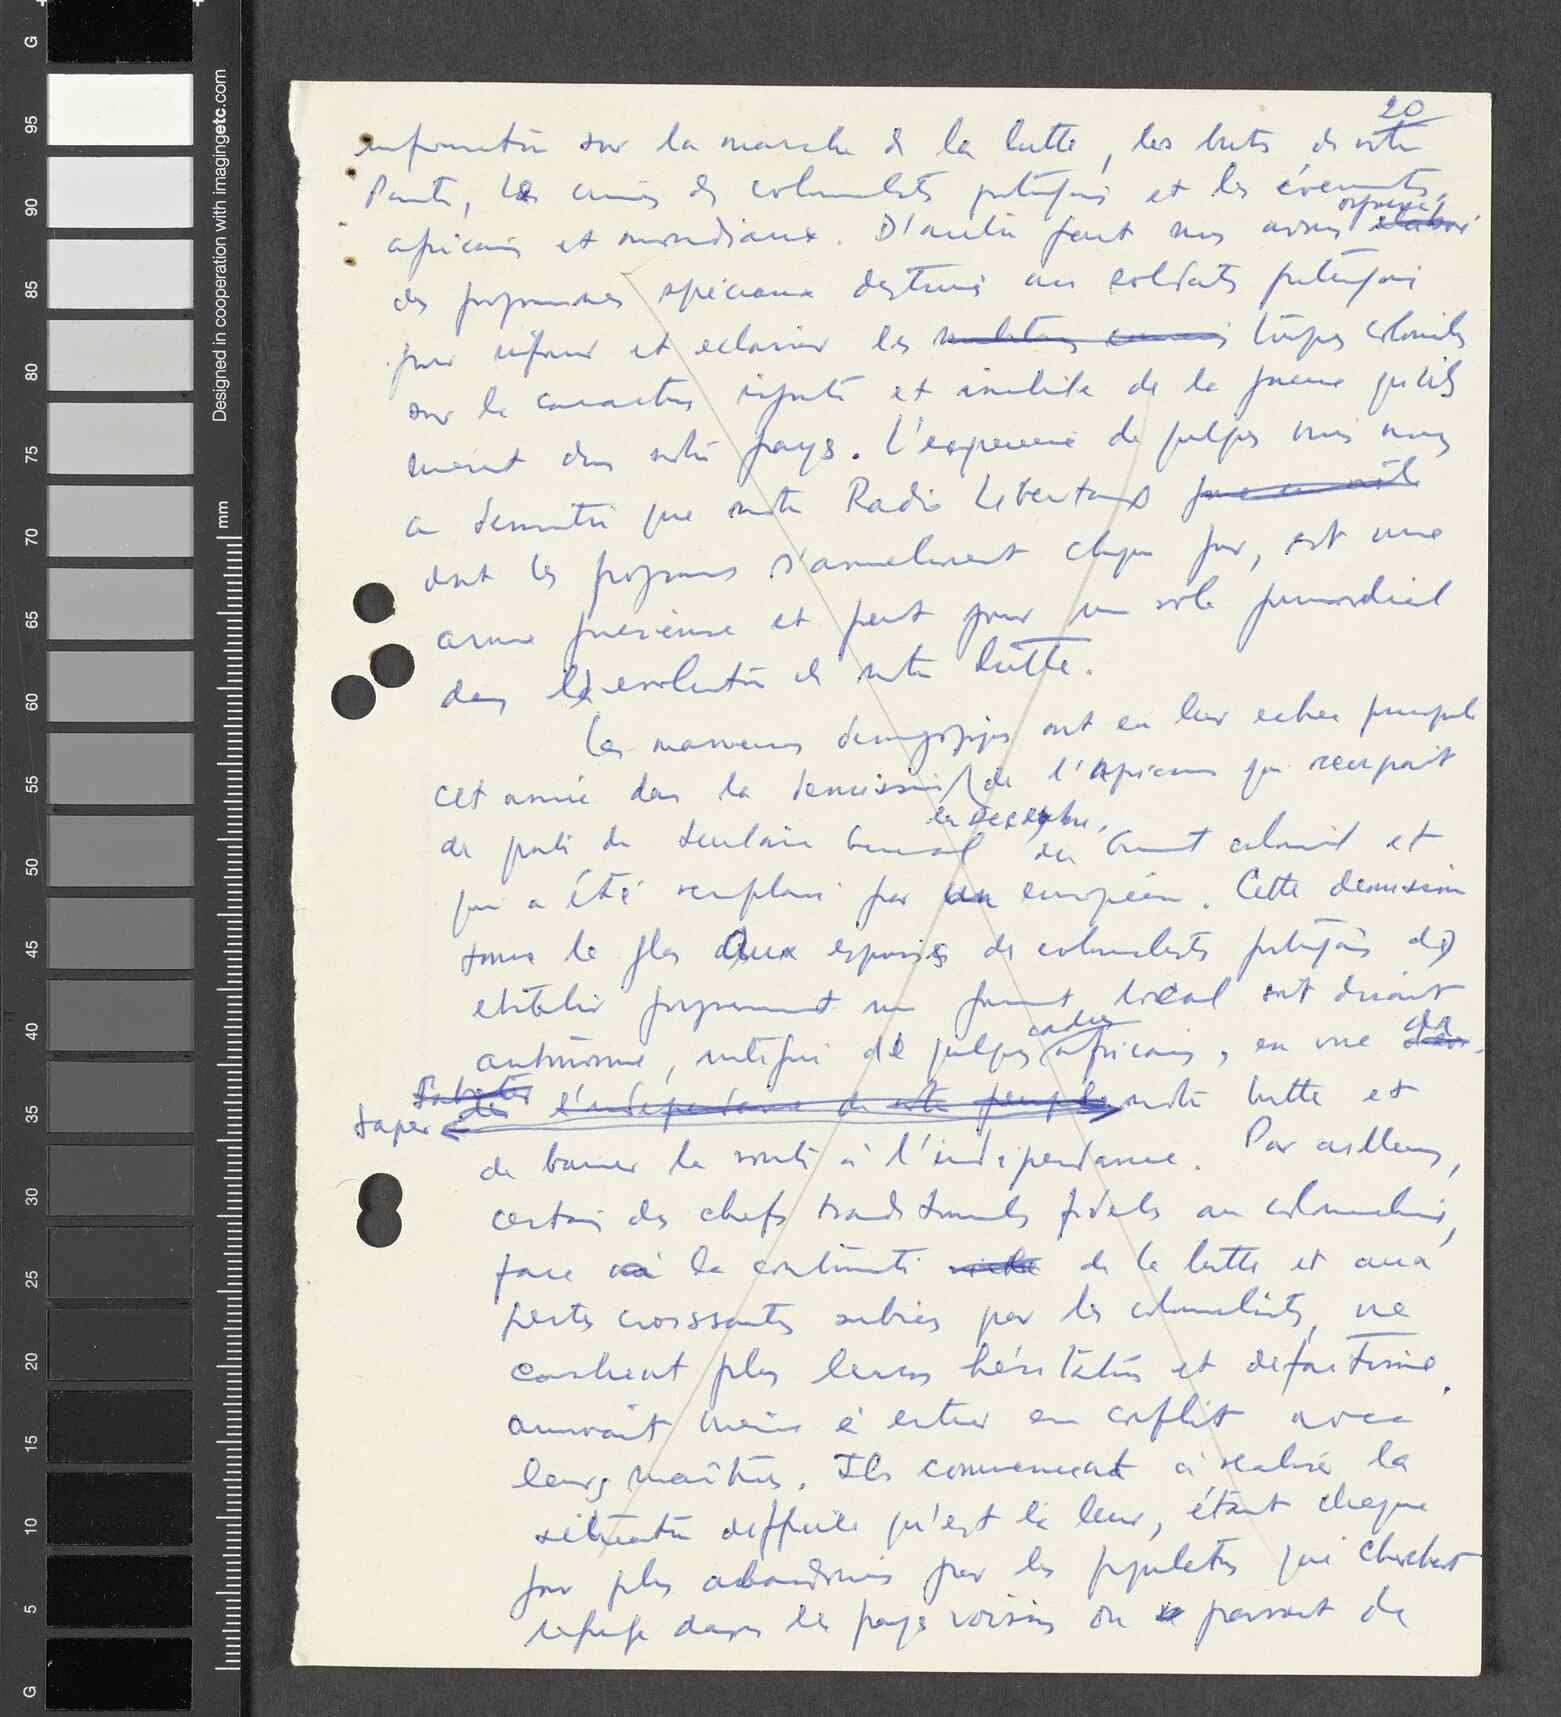 20
information sur la marche de la lutte, les buts de notre
Parti, les crimes des colonialistes portugais et les évenements
africains et mondiaux. D'autre part nous avons organisé
des programmes spéciaux destinés aux soldats portugais
pour informer et eclairer les troupes coloniales
sur le caractère injuste et inutile de la guerre qu'ils
menent dans notre pays. L'experience de quelques mois nous
a demontré que notre Radio Libertação
dont les programmes s'ameliorent chaque jour, est une
arme précieuse et peut jouer un role primordial
dans l'evolution de notre lutte.
Les manoeuvres demagogiques ont eu leur echec principal
cet année dans la demission, de l'Africain qui occupait
en decembre,
de poste de Secretaire General du Gouvernement colonial et
qui a été remplacé par un européen. Cette demission
sonne le glas aux espoirs des colonialistes portugais de
etablir un local soit disant
autonome, mitigé de quelques cadres africains, en vue de
saper notre lutte et
de barrer la route à l'independance. Par ailleurs,
certains des chefs traditionnels fideles au colonialisme,
face à la continuité de la lutte et aux
pertes croissantes subies par les colonialistes, ne
cachent plus leurs hésitations et défaitisme,
arrivant même à entrer en conflit avec
leurs maîtres. Ils commencent à realiser la
situation difficile qu'est la leur, étant chaque
jour plus abandonnés par les populations qui cherchent
refuge dans les pays voisins ou passent de
G
95
90
85
80
75
70
65
60
55
50
45
40
35
30
25
20
15
10
5
G
mm
Designed in cooperation with imagingetc.com